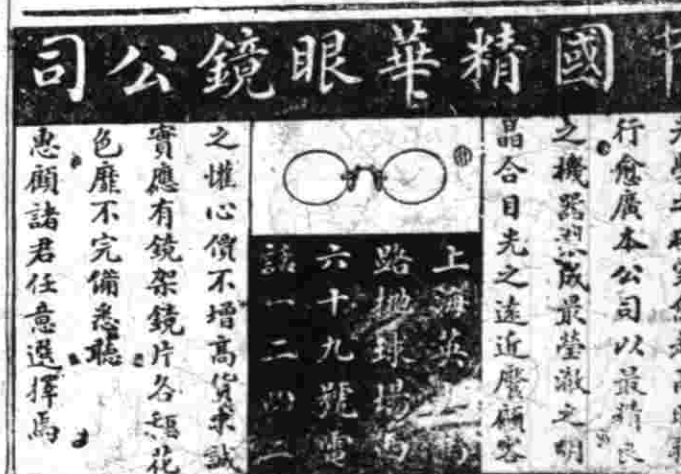 中國精華眼鏡公司
行愈廣本公司以最精良
之機器製成最瑩澈之明
晶合目光之遠近饜顧客
上海英
路拋球場
六十九號電
話一二四三
之懽心價不增高貨求誠
實應有鏡架鏡片各種花
色靡不完備悉聽
惠顧諸君任意選擇焉